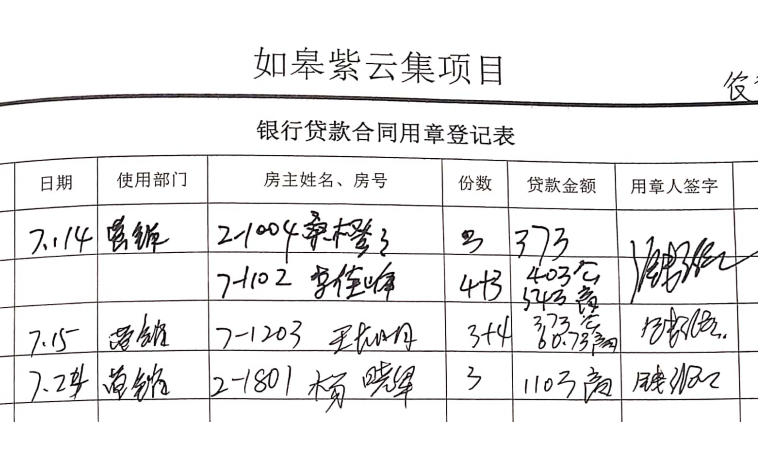 如皋紫云集项目
银行贷款合同用章登记表
日期 使用部门 房主姓名、房号 份数 贷款金额 用章人签字
7.14 营销 2-1004 3 373
7-1102 李佳峰 4+3 40万公
54万商
7.15 营销 7-1203 3+4 37万公
60.7万商
7.24 营销 2-1801 杨晓军 3 110万商